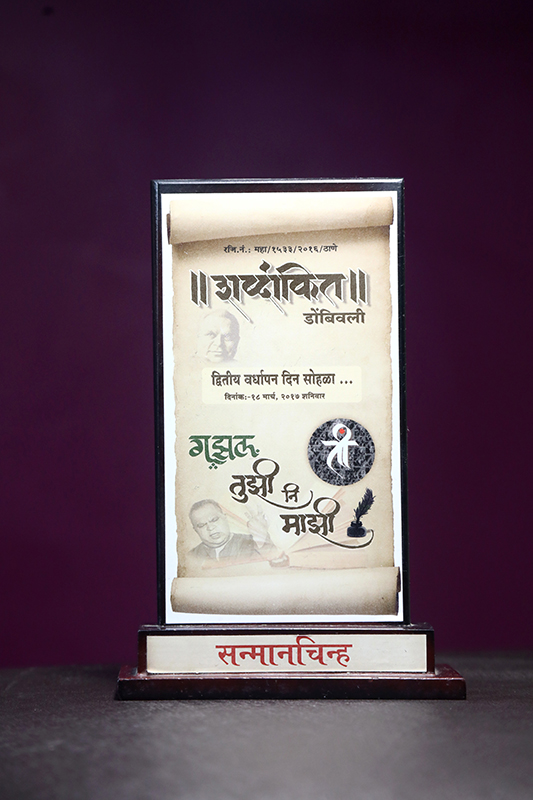 रजि.नं.: महा/१५३३/२०१६/ठाणे
॥शब्दांकित॥
डोंबिवली
द्वितीय वर्धापन दिन सोहळा ...
दिनांक:-१८ मार्च, २०१७ शनिवार
गझल
तुझी
नि
माझी
ती
सन्मानचिन्ह